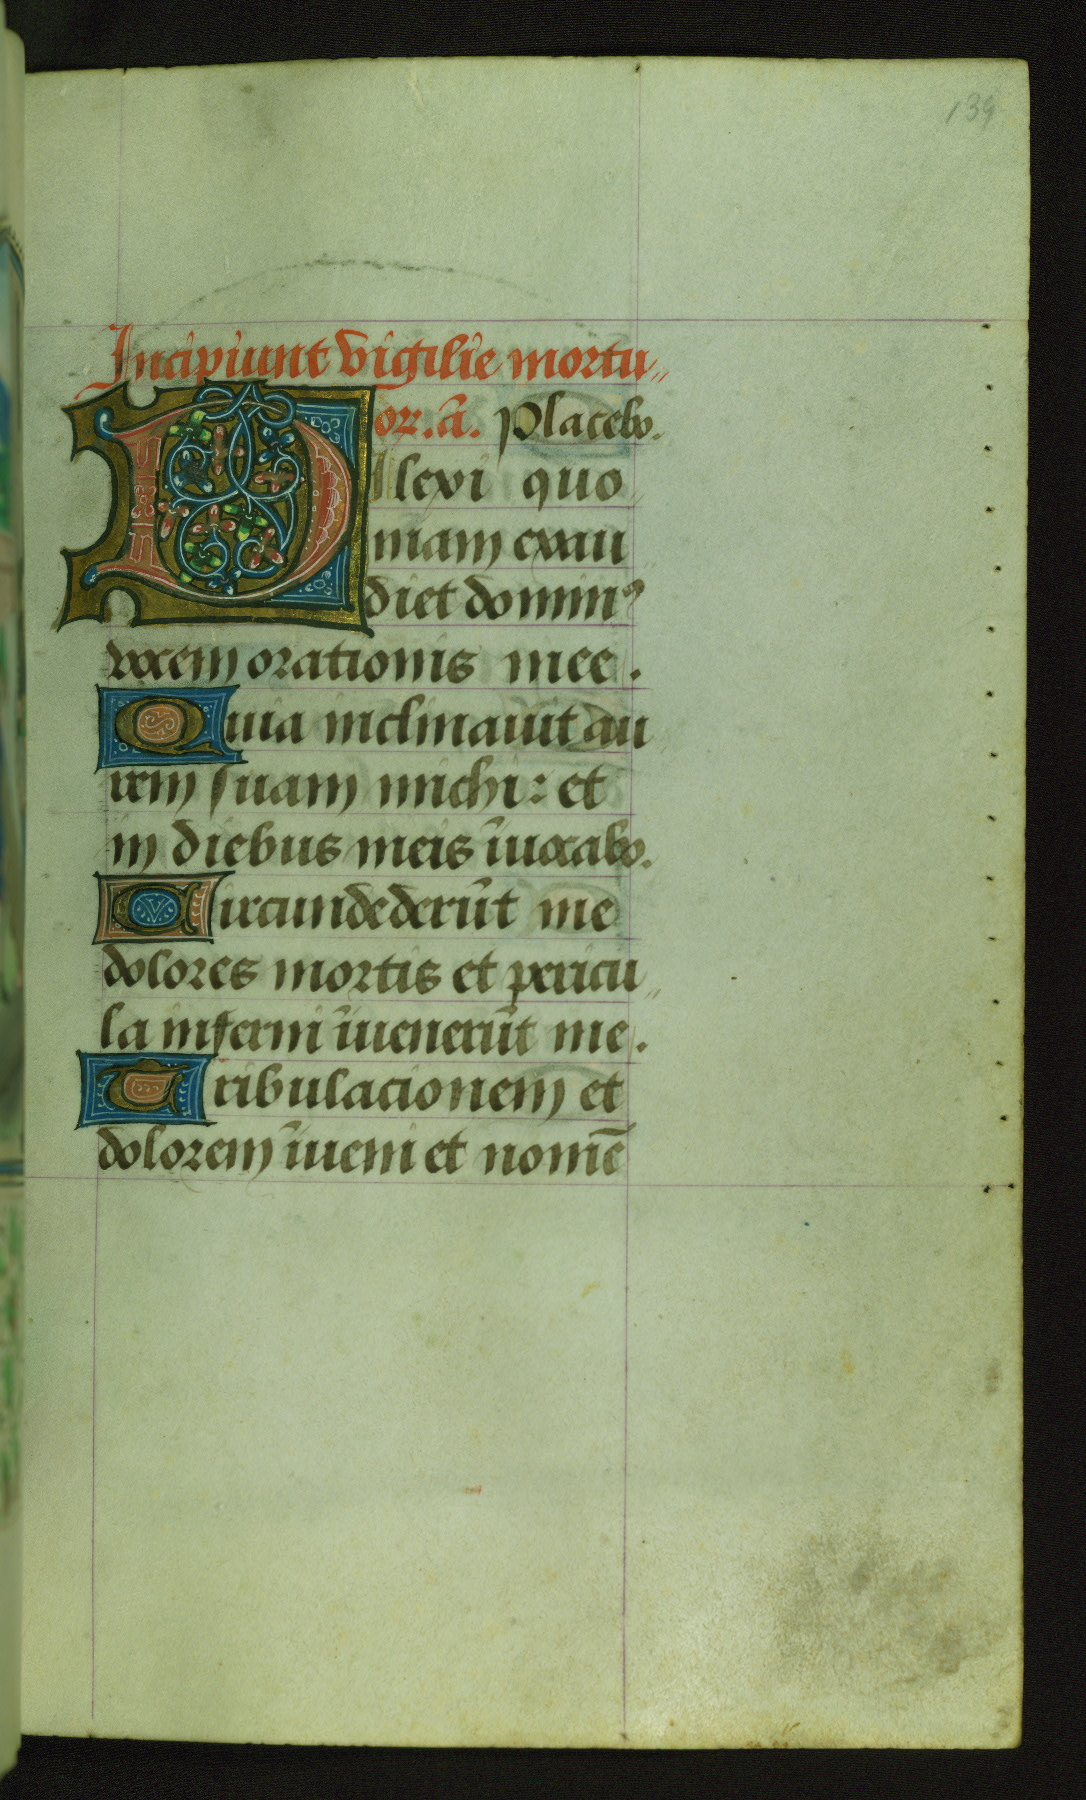 139
Incipiunt vigilie mortu„
or. añ. Placebo.
Dilexi quo
niam exau
diet domin⁹
vocem orationis mee.
Quia inclinauit au
rem suam michi: et
in diebus meis īuocabo.
Circundederūt me
dolores mortis et pericu„
la inferni īuenerūt me.
Tribulacionem et
dolorem īueni et nomē